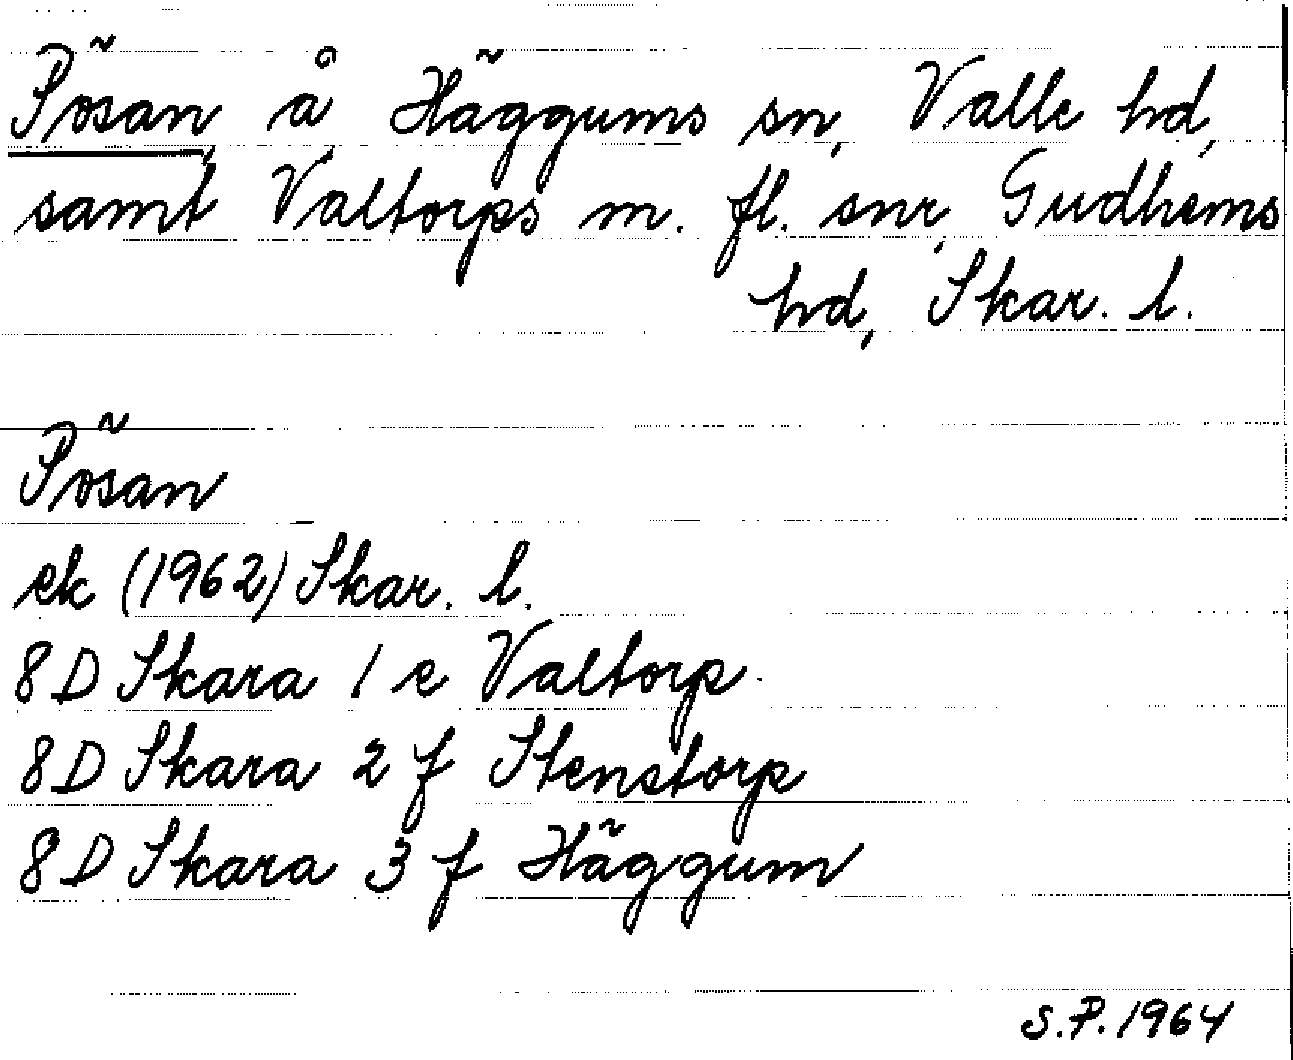 Pösan, å Häggums sn, Valle hd,
samt Valtorps m. fl. snr, Gudhems
hd, Skar. l.
Pösan
ek (1962) Skar. l.
8D Skara 1 e Valtorp.
8D Skara 2 f Stenstorp
8D Skara 3 f Häggum
S.P. 1964